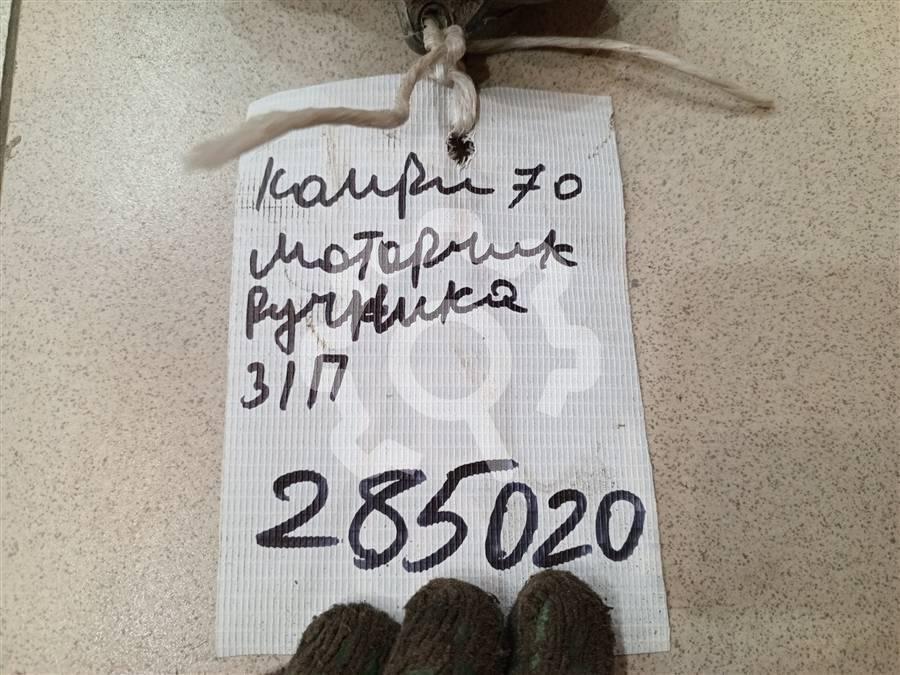 Камри 70
моторчик
ручника
З/П
285020